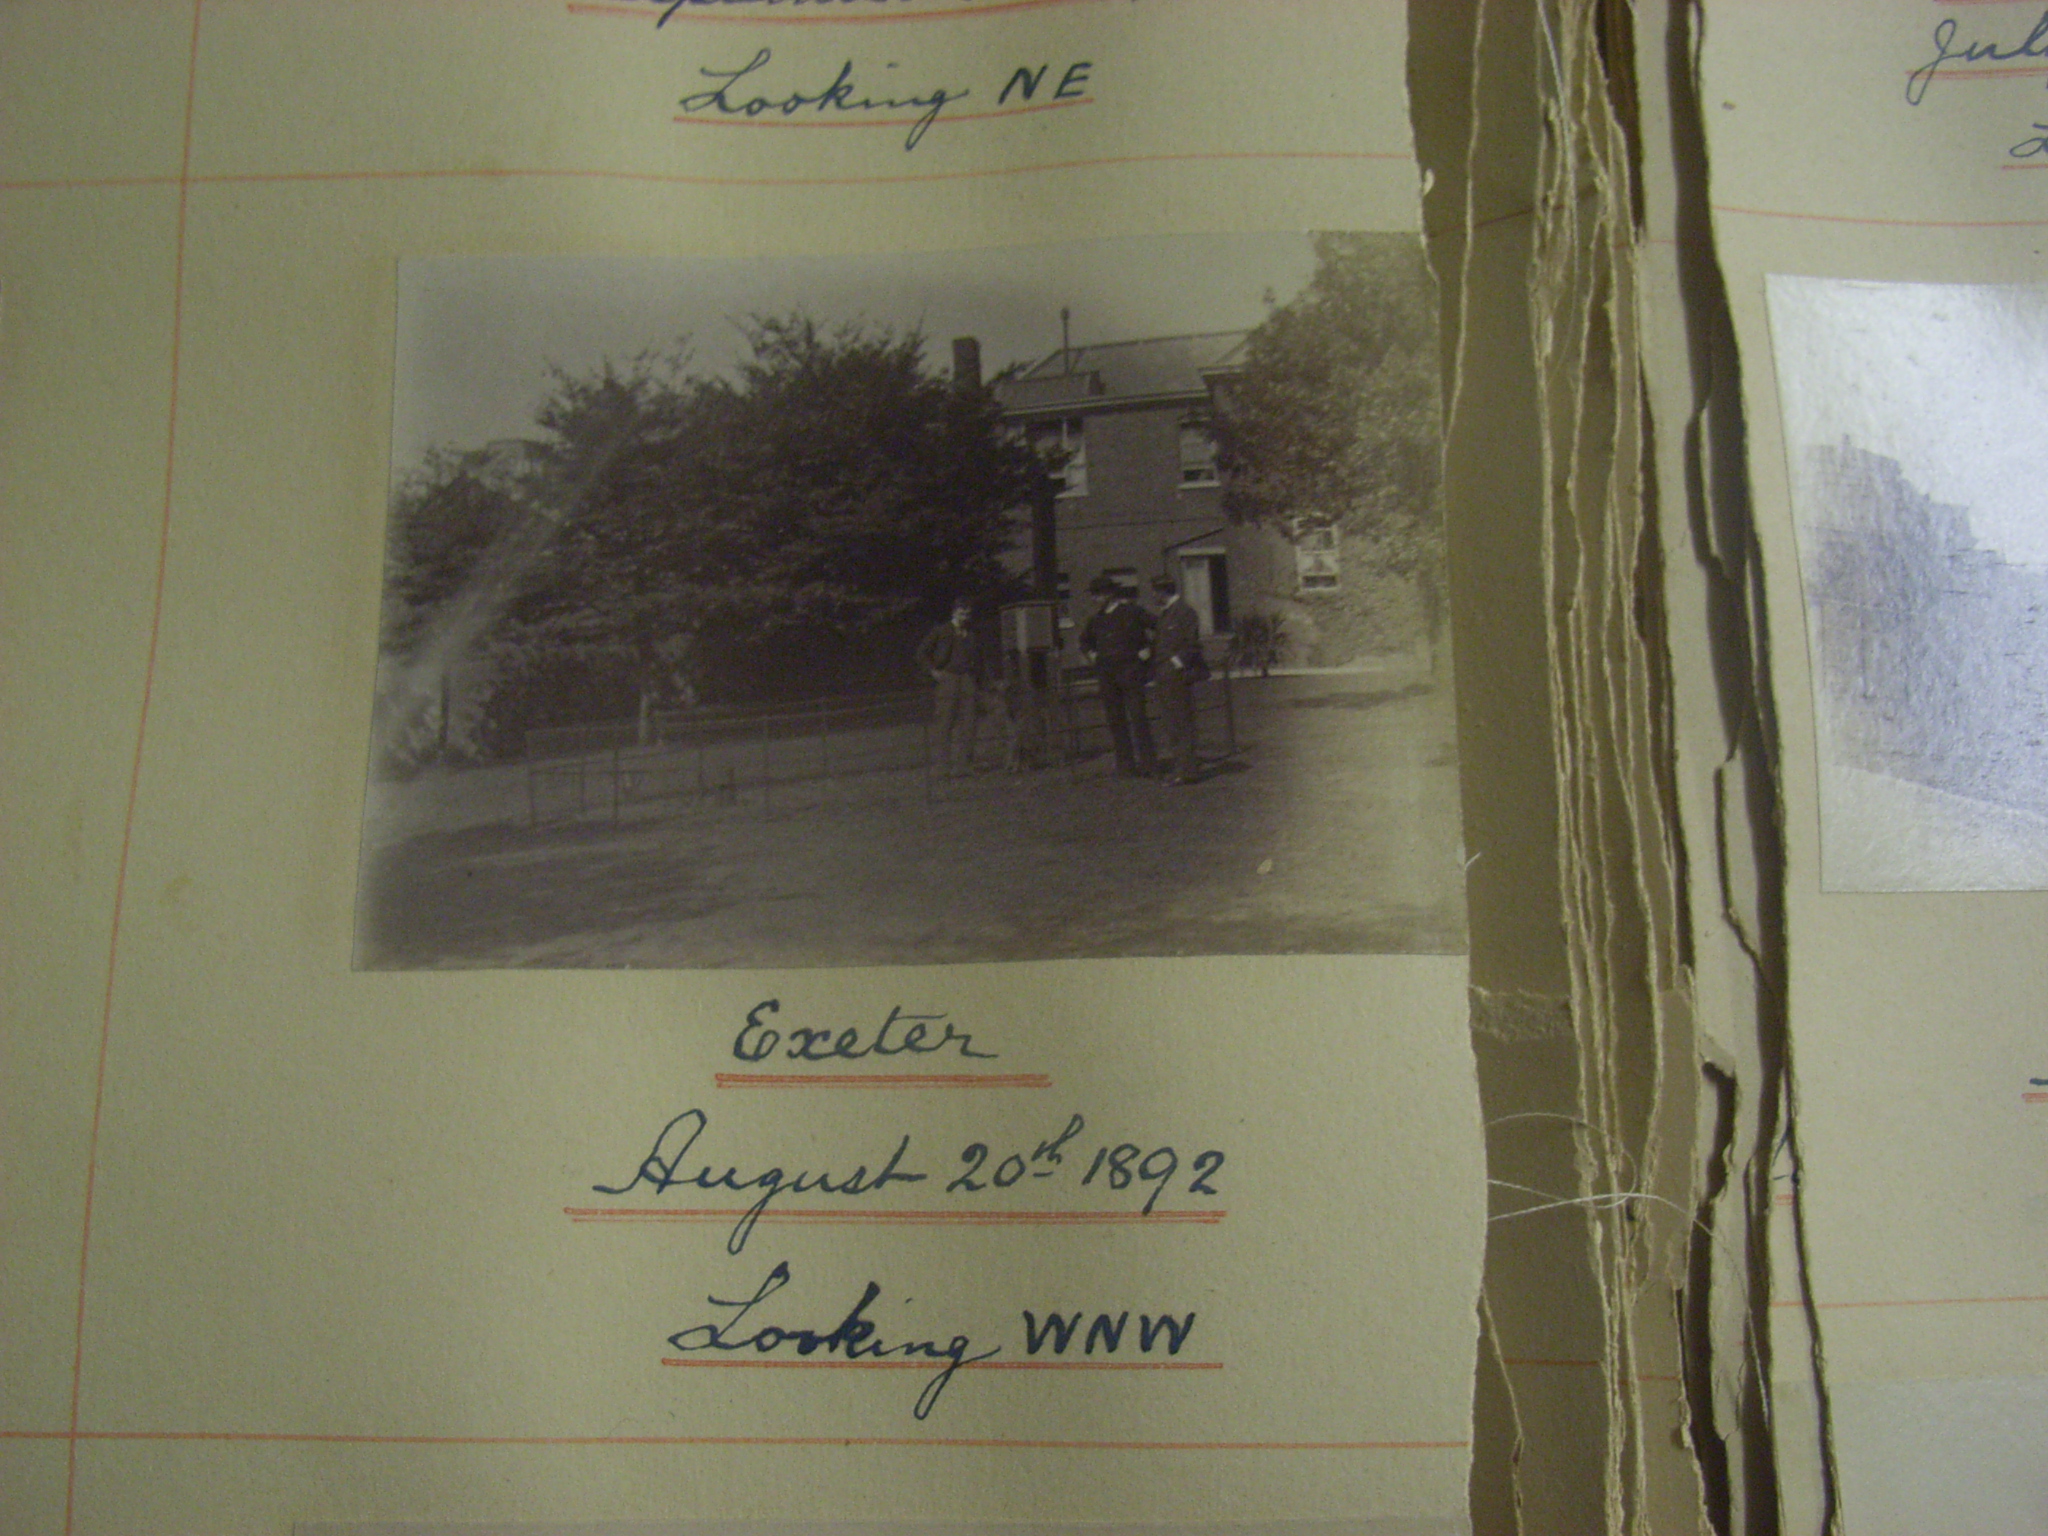 Looking NE
July
Exeter
August 20th 1892
Looking WNW